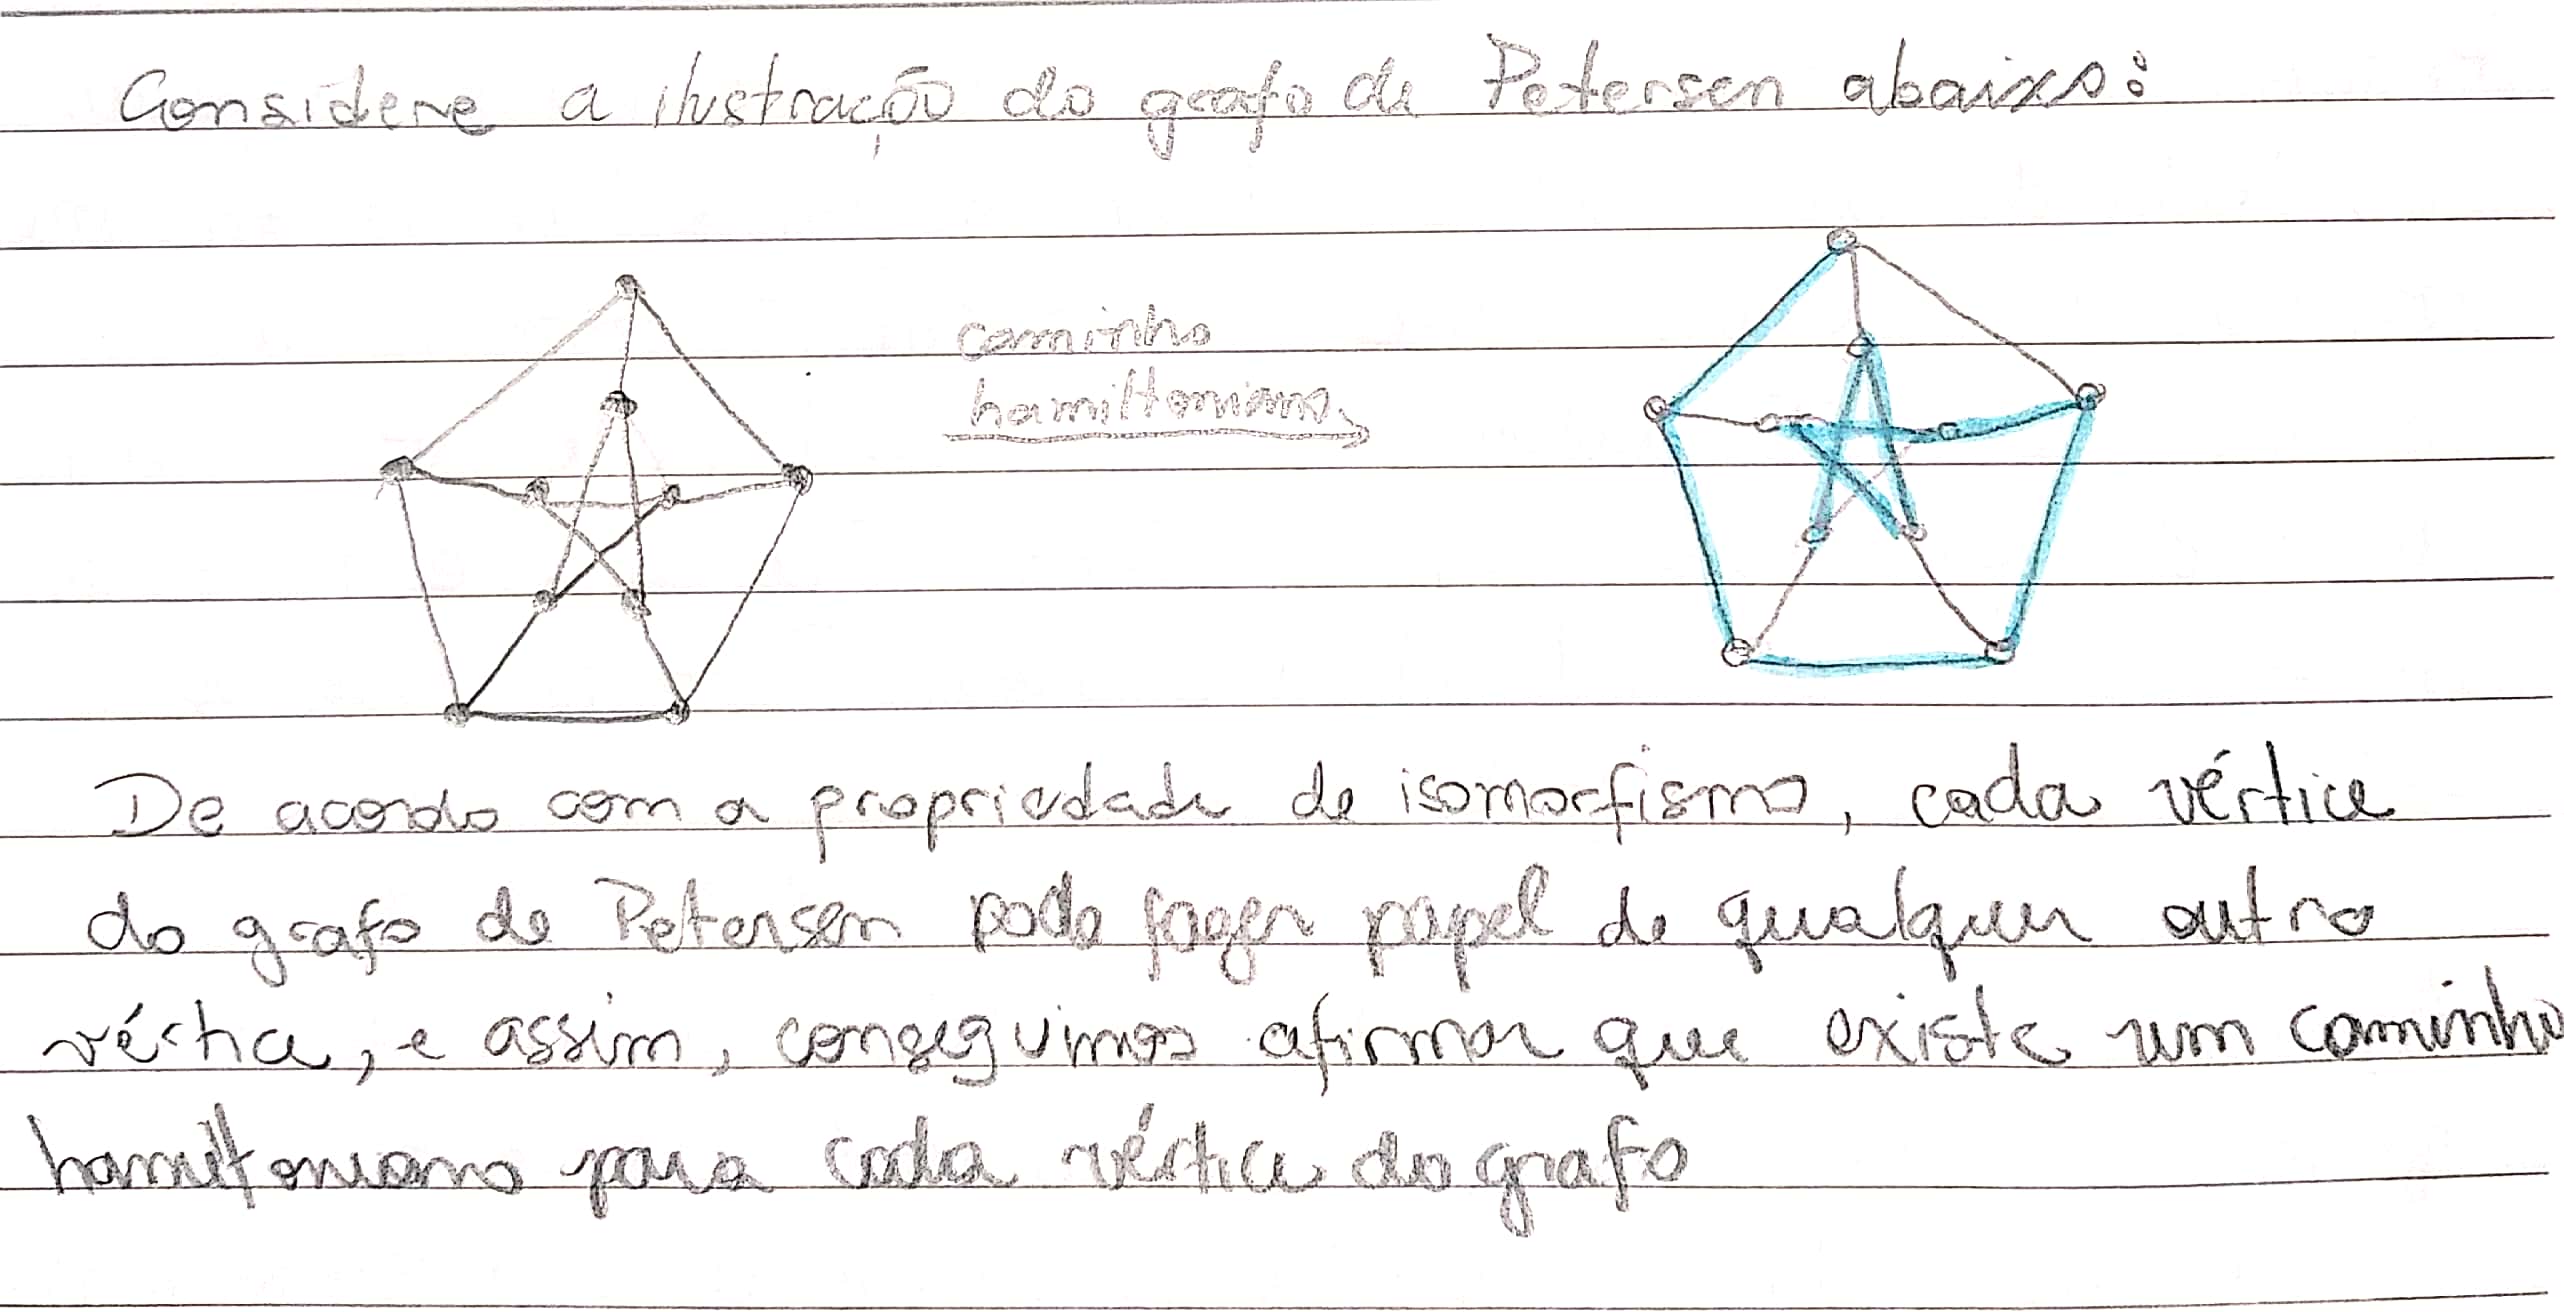 Considere a ilustração do grafo de Petersen abaixo:
caminho
hamiltoniano
De acordo com a propriedade de isomorfismo, cada vértice
do grafo de Petersen pode fazer papel de qualquer outro
vértice, e assim, conseguimos afirmar que existe um caminho
hamiltoniano para cada vértice do grafo